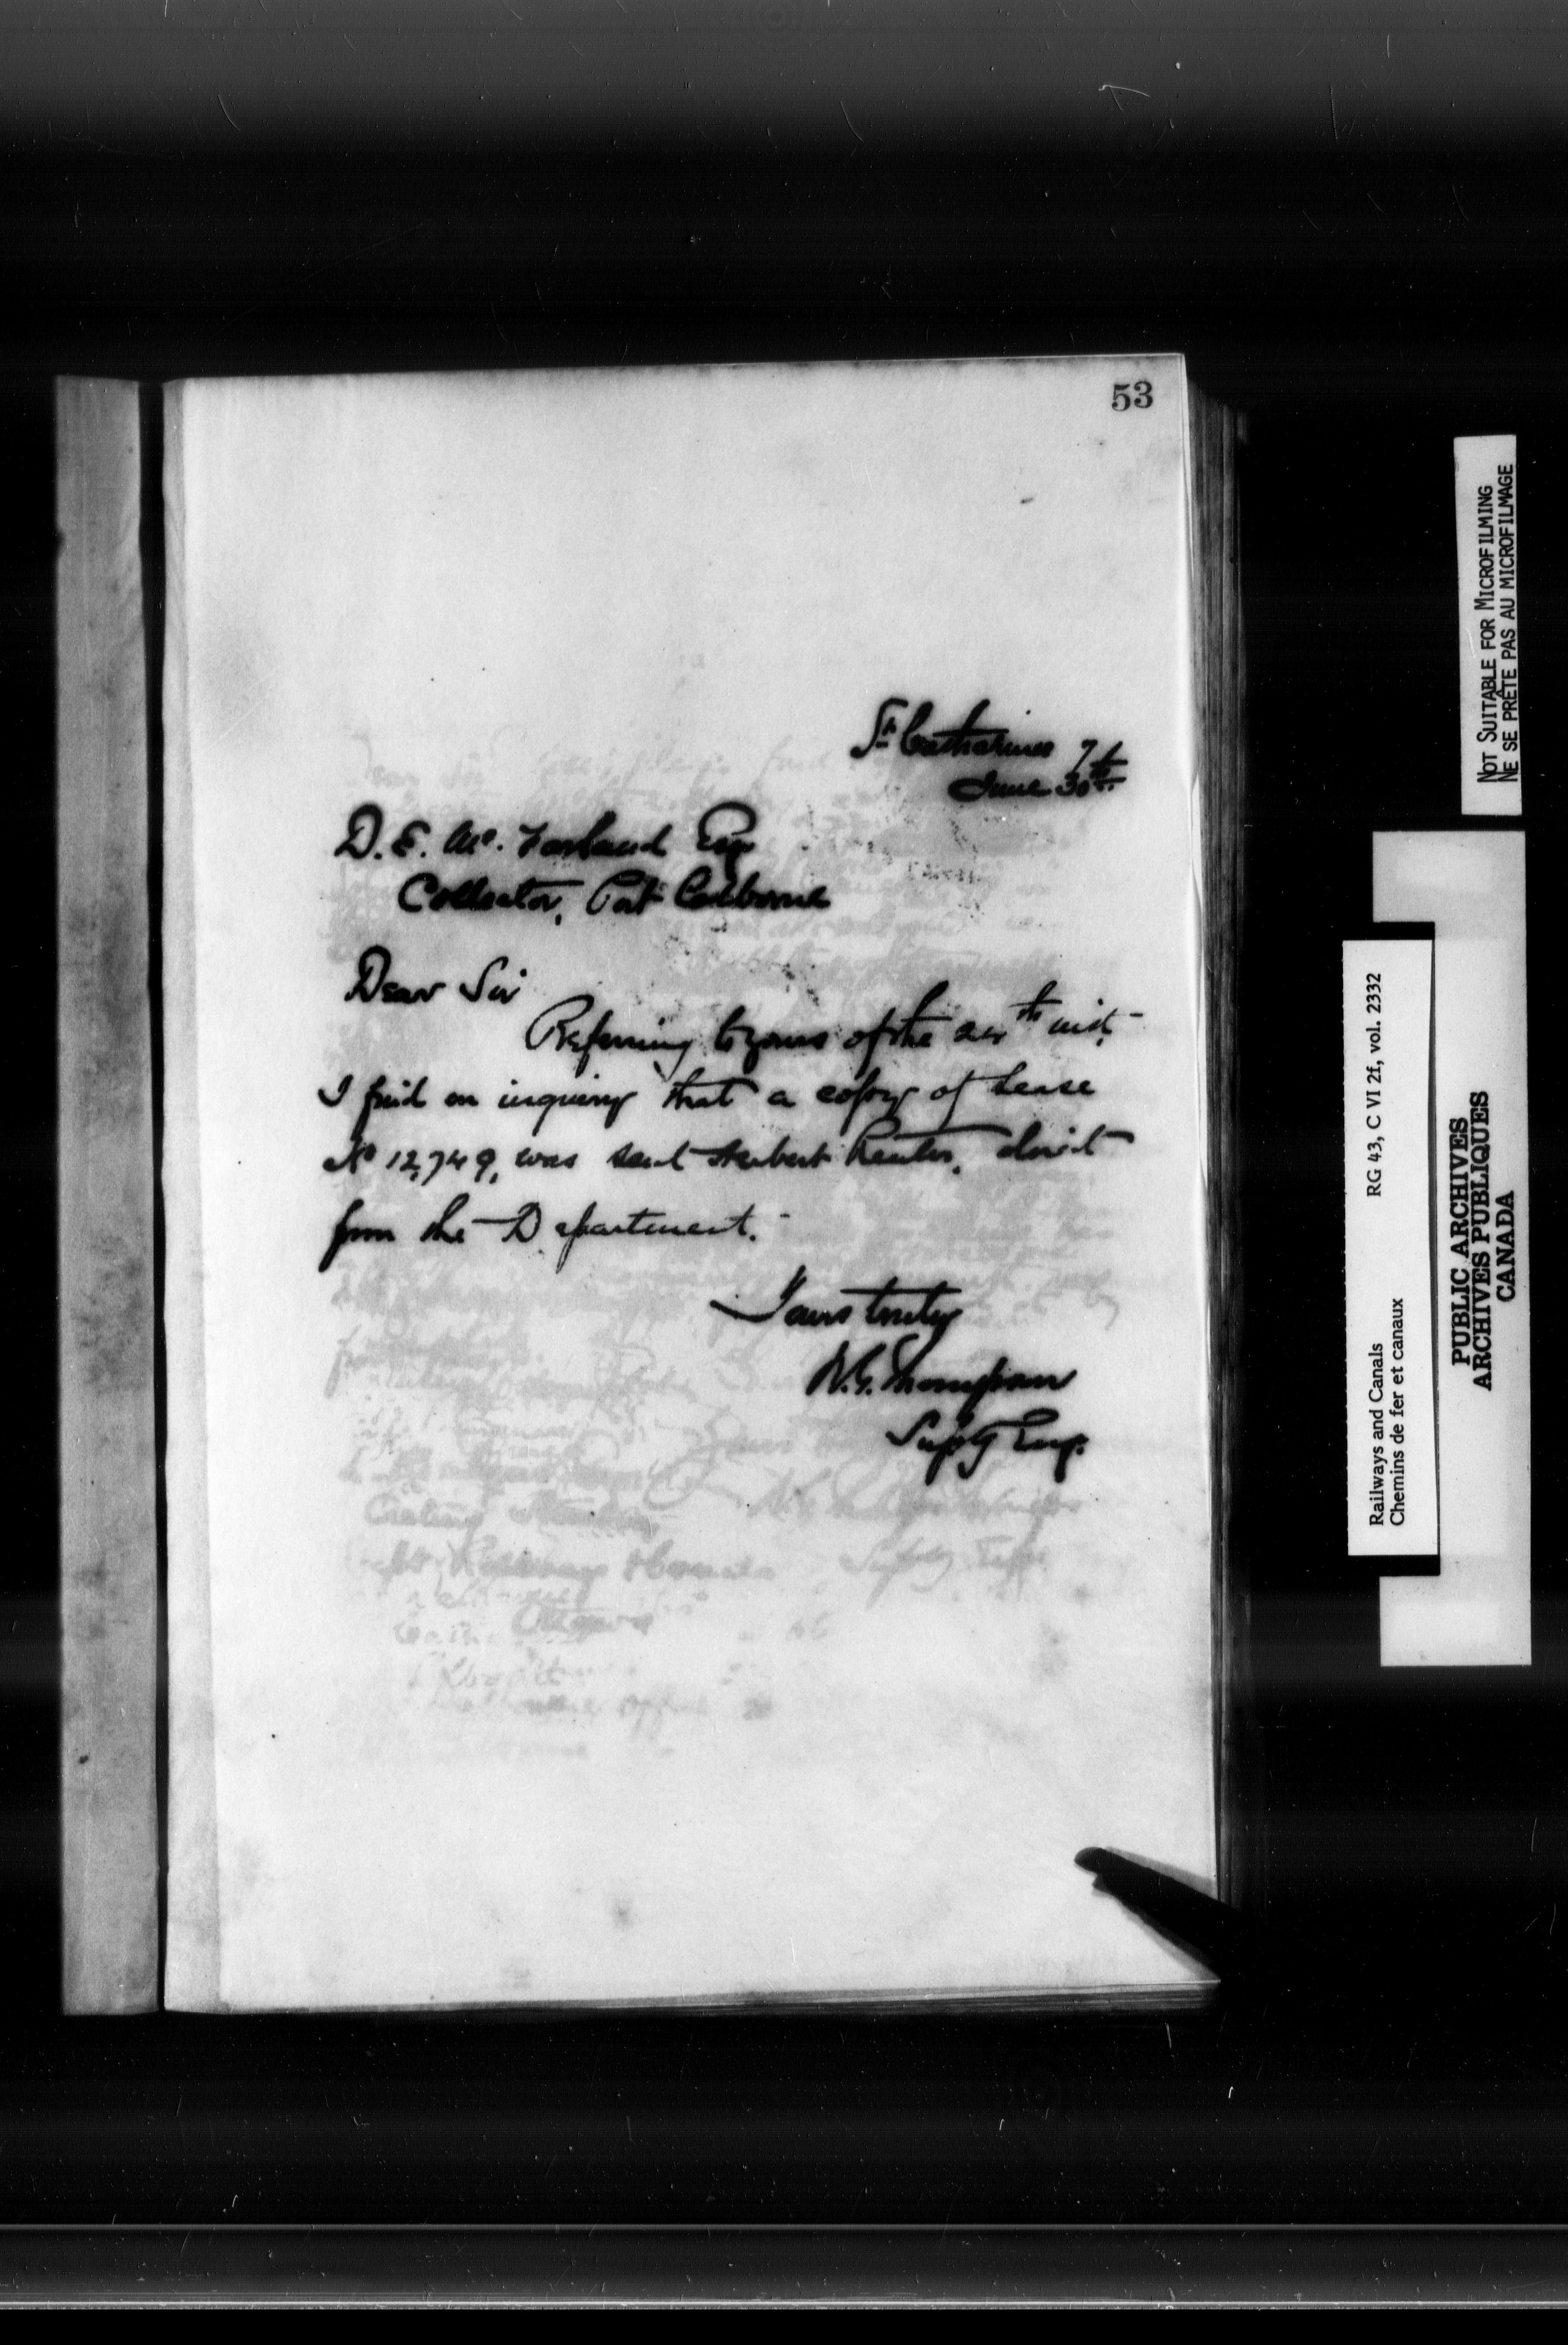 53
St Catharines
June 30th
D. E. Mc. Farland Esq
Collector, Port Colborne
Dear Sir
Referring to yours of the 24th inst.
I find on inquiry that a copy of Lease
No 12,749, was sent Herbert direct
from the Department.
Yours truly
W.G. Thompson
Suptg Eng.
NOT SUITABLE FOR MICROFILMING
NE SE PRÊTE PAS AU MICROFILMAGE
Railways and Canals RG 43, C VI 2f, vol. 2332
Chemins de fer et canaux
PUBLIC ARCHIVES
ARCHIVES PUBLIQUES
CANADA